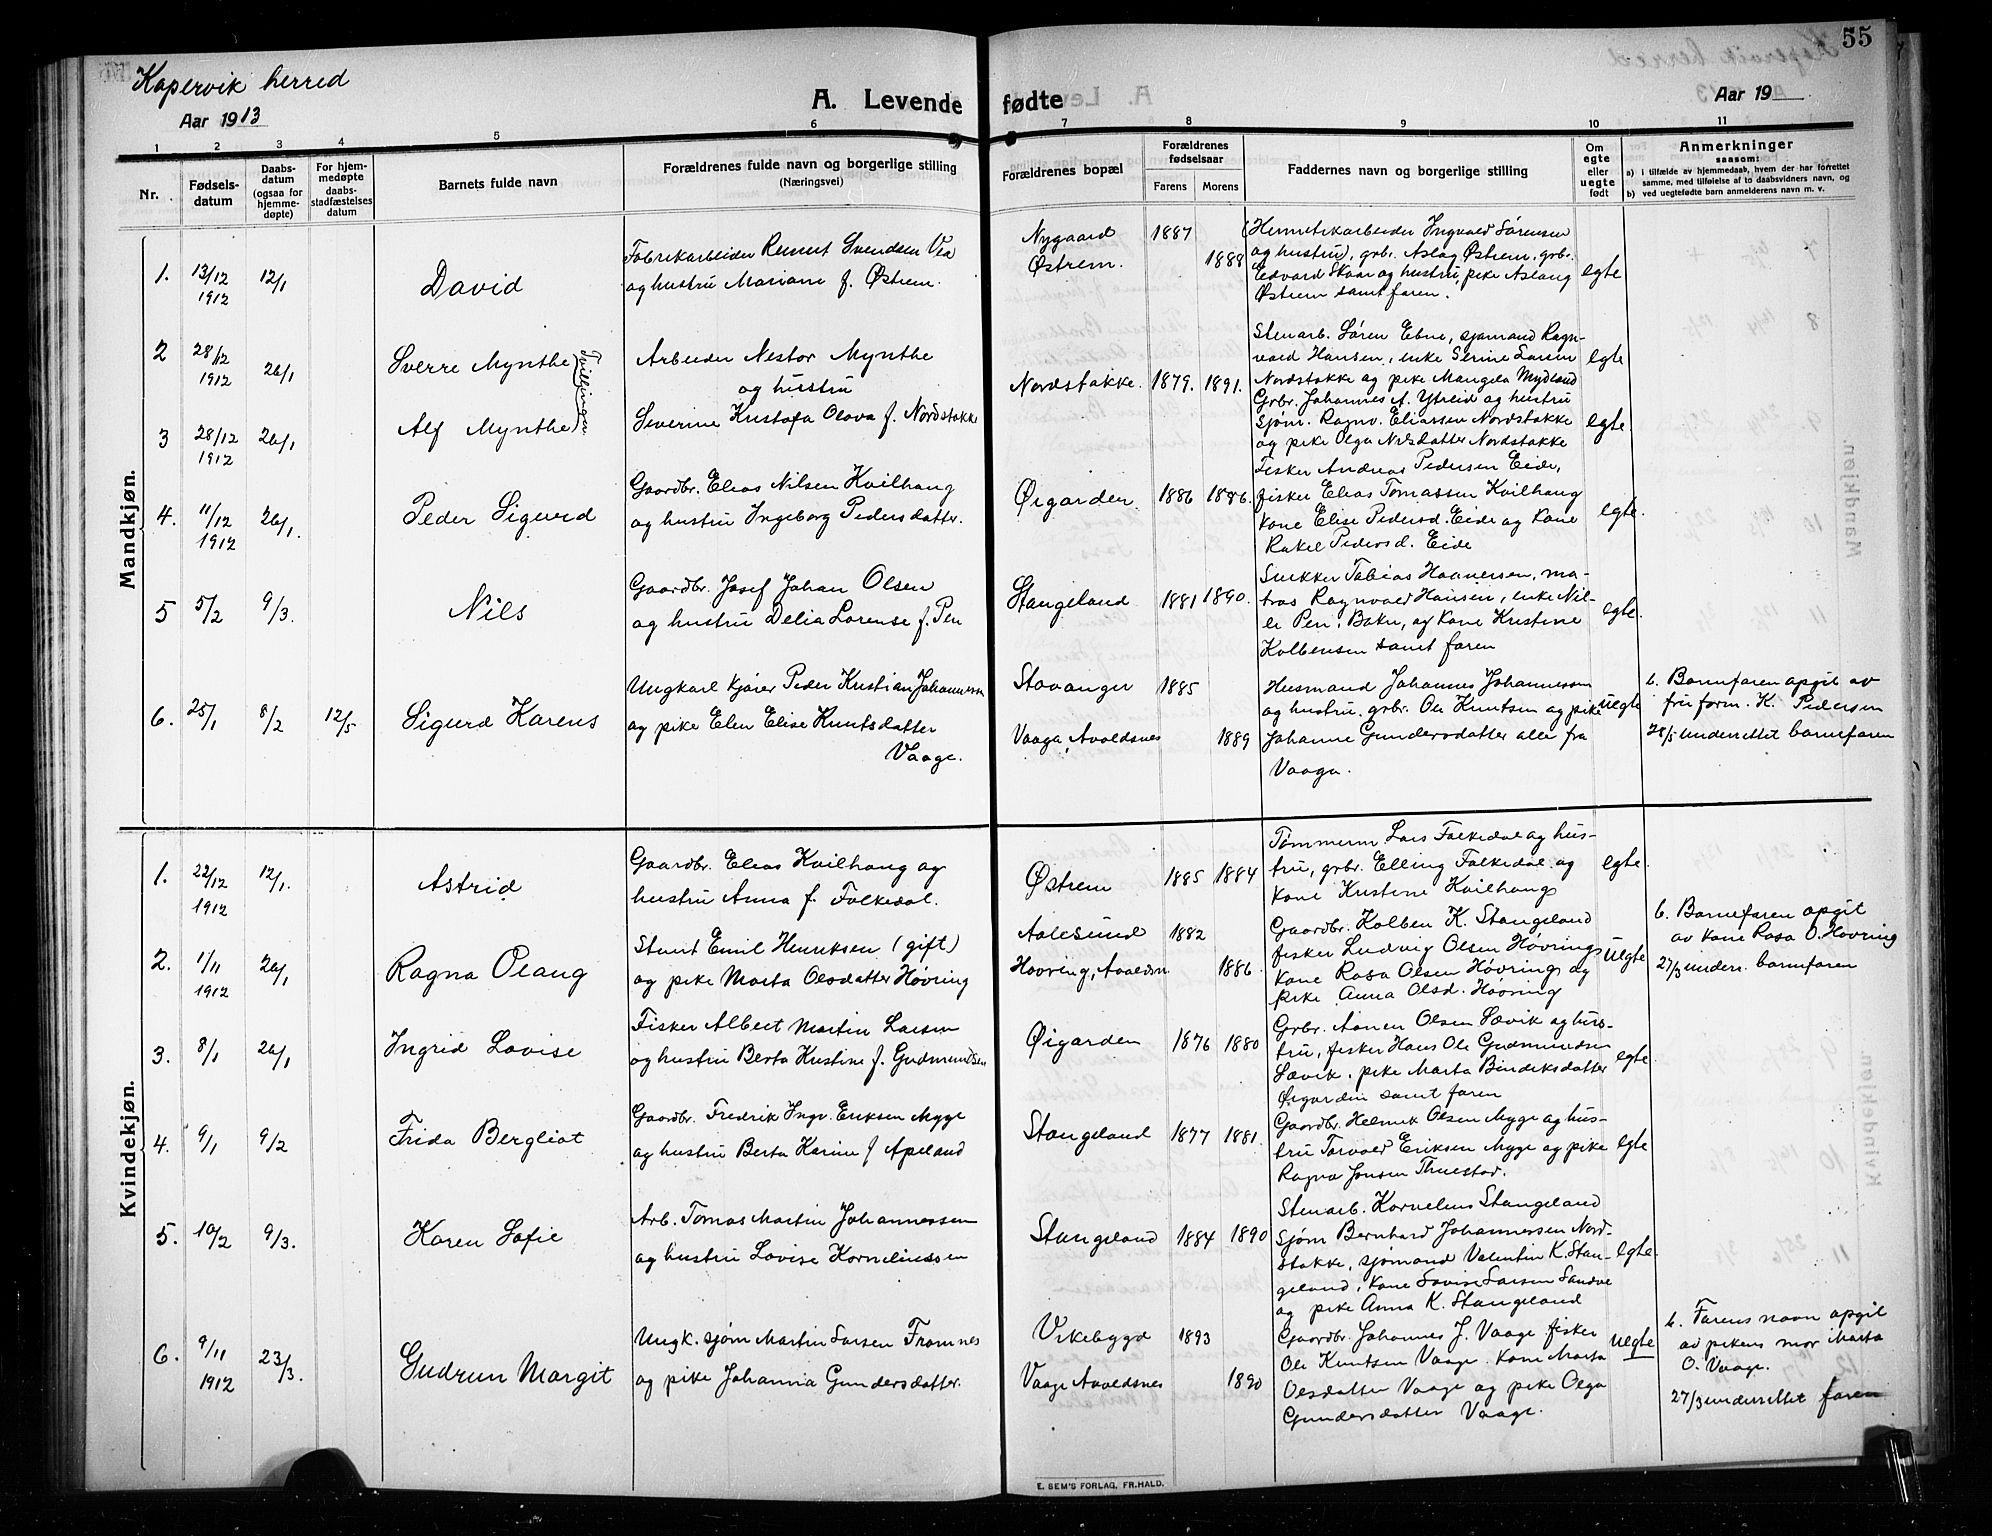 55
Kopervik herred
Aar 1913
A. Levende fødte
Aar 19
1 2 3 4 5 6 7 8 9 10 11
Nr.
Fødsels-datum
Daabs-datum (ogsaa for hjemme-døpte)
For hjem-medøpte daabs-stadfæstelses datum
Barnets fulde navn
Forældrenes fulde navn og borgerlige stilling
(Næringsvei)
Forældrenes bopæl
Forældrenes fødselsaar
Farens
Morens
Faddernes navn og borgerlige stilling
Om egte eller uegte født
Anmerkninger
saasom:
a) i tilfælde av hjemmedaab, hvem der har forrettet
samme, med tilføielse af to daabsvidners navn, og
b) ved uegtefødte barn anmelderens navn m. v.
Mandkjøn.
1. 13/12 1912 12/1 David
Fabrikarbeider Reinert Svendsen Vea
og hustru Mariane f. Østrem.
Nygaard
Østrem.
1887 1888
Hermetikarbeider Ingvald Sørensen
og hustru, grb. Aslag Østrem, grb.
Edvard Skaar og hustru, pike Aslaug
Østrem samt faren.
egte
2 28/12 1912 26/1 Sverre Mynthe
Tvillinger
Arbeider Nestor Mynthe
og hustru
Severine Kristofa Olava f. Nordstokke
Nordstokke. 1879. 1891.
Stenarb. Søren Ebne, sjømand Ragn-
vald Hansen, enke Serine Larsen
Nordstokke og pike Mangela Mydland
egte
3 28/12 1912 26/1 Alf Mynthe
Grbr. Johannes A. Ytreid og hustru
Sjøm. Ragnv. Eliassen Nordstokke
og pike Olga Nilsdatter Nordstokke
egte
4. 11/12 1912 26/1. Peder Sigurd
Gaardbr. Elias Nilsen Kvilhaug
og hustru Ingeborg Pedersdatter.
Øigarden 1886 1886.
Fisker Andreas Pedersen Eide,
fisker Elias Tomassen Kvilhaug
kone Elise Pedersd. Eide og kone
Rakel Pedersd. Eide
egte.
5 5/2 9/3. Nils
Gaardbr. Josef Johan Olsen
og hustru Delia Lorense f. Pen
Stangeland 1881 1890.
Snekker Tobias Haaversen, ma-
tros Ragnvald Hansen, enke Nil-
le Pen, Bokn, og kone Kristine
Kolbensen samt faren
egte.
6. 25/1 8/2 12/5 Sigurd Karens
Ungkarl kjører Peder Kristian Johannessen
og pike Elen Elise Knutsdatter
Vaage.
Stavanger 1885
Vaage, Avaldsnes 1889
Husmand Johannes Johannessen
og hustru, grbr. Ole Knutsen og pike
Johanne Gundersdatter alle fra
Vaage.
uegte
b. Barnefaren opgit av
fru form. K. Pedersen
28/5 underrettet barnefaren
Kvindekjøn.
1. 22/12 1912 12/1. Astrid
Gaardbr. Elias Kvilhaug og
hustru Anna f. Falkedal.
Østrem 1885 1884
Tømmerm. Lars Falkedal og hus-
tru, grbr. Elling Falkedal og
kone Kristine Kvilhaug
egte
2. 1/11 1912 26/1 Ragna Olaug
Stuert Emil Henriksen (gift)
og pike Marta Olsdatter Høvring
Aalesund 1882
Høvring, Avaldsn. 1886.
Gaardbr. Kolben K. Stangeland
fisker Ludvig Olsen Høvring
kone Rasa Olsen Høvring og
pike Anna Olsd. Høvring
uegte
b. Barnefaren opgit
av kone Rasa O. Høvring
27/3 underr. barnefaren
3. 8/1 26/1 Ingrid Lovise
Fisker Albert Martin Larsen
og hustru Berta Kristine f. Gudmundsen
Øigarden 1876 1880
Grbr. Aanen Olsen Sævik og hus-
tru, fisker Hans Ole Gudmundsen
Sævik, pike Marta Bindiksdatter
Øigarden samt faren
egte
4. 9/1 9/2 Frida Bergliot
Gaardbr. Fredrik Ingv. Eriksen Myge
og hustru Berta Karine f Apeland
Stangeland 1877 1881.
Gaardbr. Helmik Olsen Myge og hus-
tru Torvald Eriksen Myge og pike
Ragna Jonsen Thuestad.
egte
5. 10/2 9/3. Karen Sofie
Arb. Tomas Martin Johannessen
og hustru Lovise Korneliussen
Stangeland 1884 1890
Stenarb. Kornelius Stangeland
sjøm Bernhard Johannessen Nord-
stokke, sjømand Valentin K. Stan-
geland, kone Lovise Larsen Sandve
og pike Anna K. Stangeland
egte.
6. 9/11 1912 23/3. Gudrun Margit
Ungk. sjøm Martin Larsen Framnes
og pike Johanna Gundersdatter.
Vikebygd 1893
Vaage Avaldsnes 1890
Gaardbr. Johannes J. Vaage fisker
Ole Knutsen Vaage. kone Marta
Olsdatter Vaage og pike Olga
Gundersdatter Vaage.
uegte
b. Farens navn opgit
av pikens mor Marta
O. Vaage.
27/3 underrettet faren
E. SEM'S FORLAG, FR.HALD.